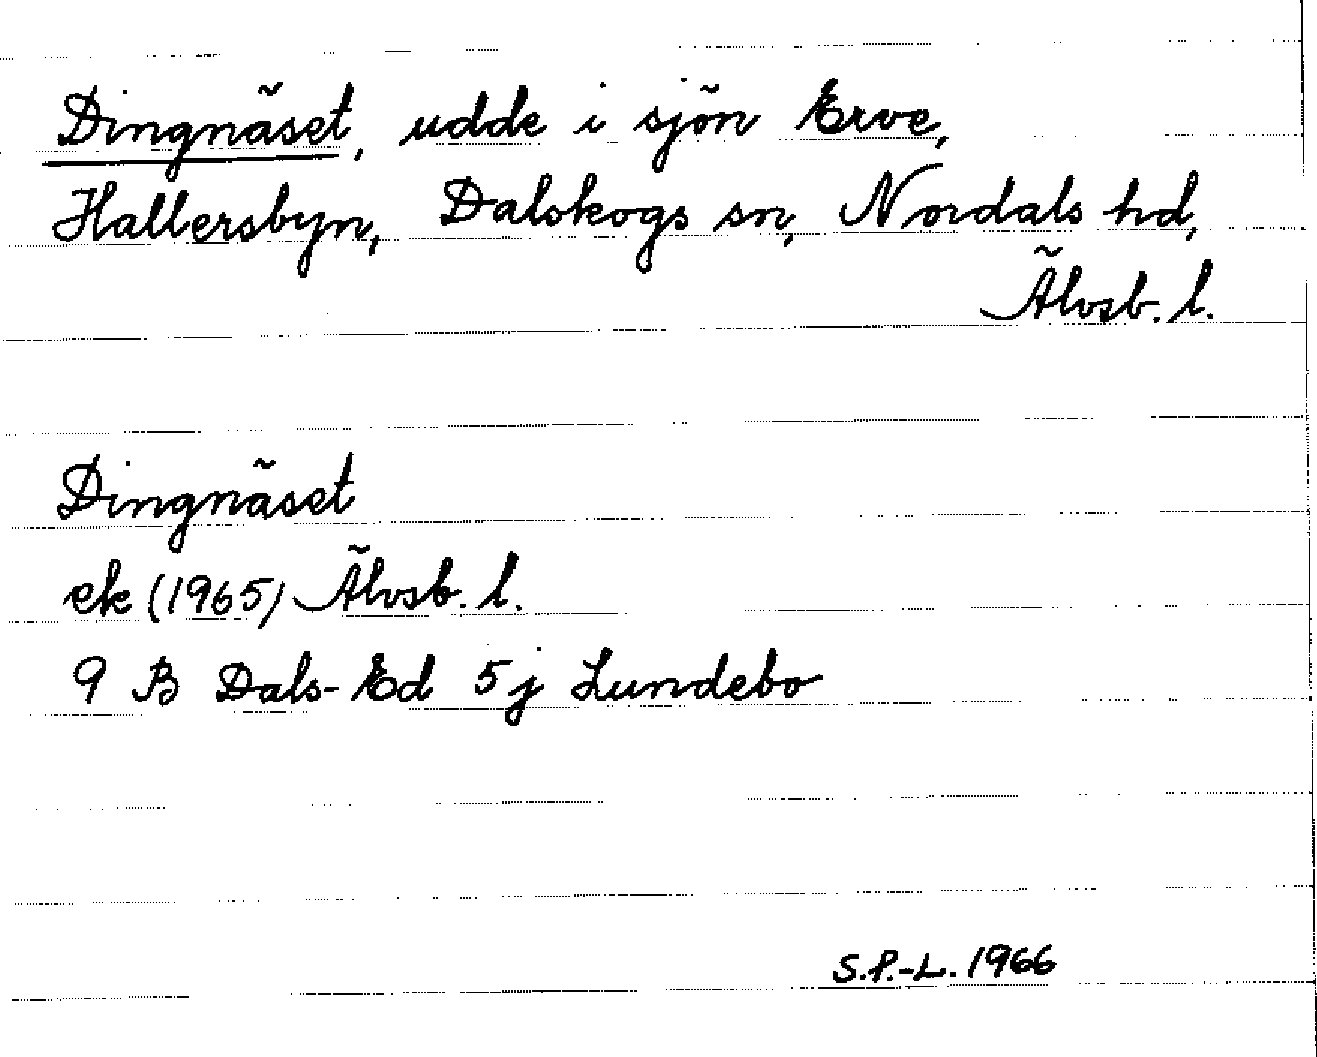 Dingnäset, udde i sjön Erve,
Hallersbyn, Dalskogs sn, Nordals hd,
Älvsb. l.
Dingnäset
ek (1965) Älvsb. l.
9 B Dals-Ed 5 j Lundebo
S.P.-L. 1966